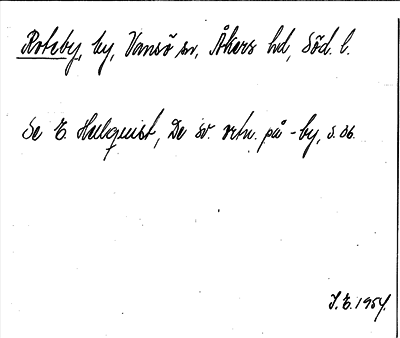 Roteby, by, Vansö sn, Åkers hd, Söd. l.
Se E. Hellquist, De sv. ortn. på -by, s. 86.
J. E. 1954.